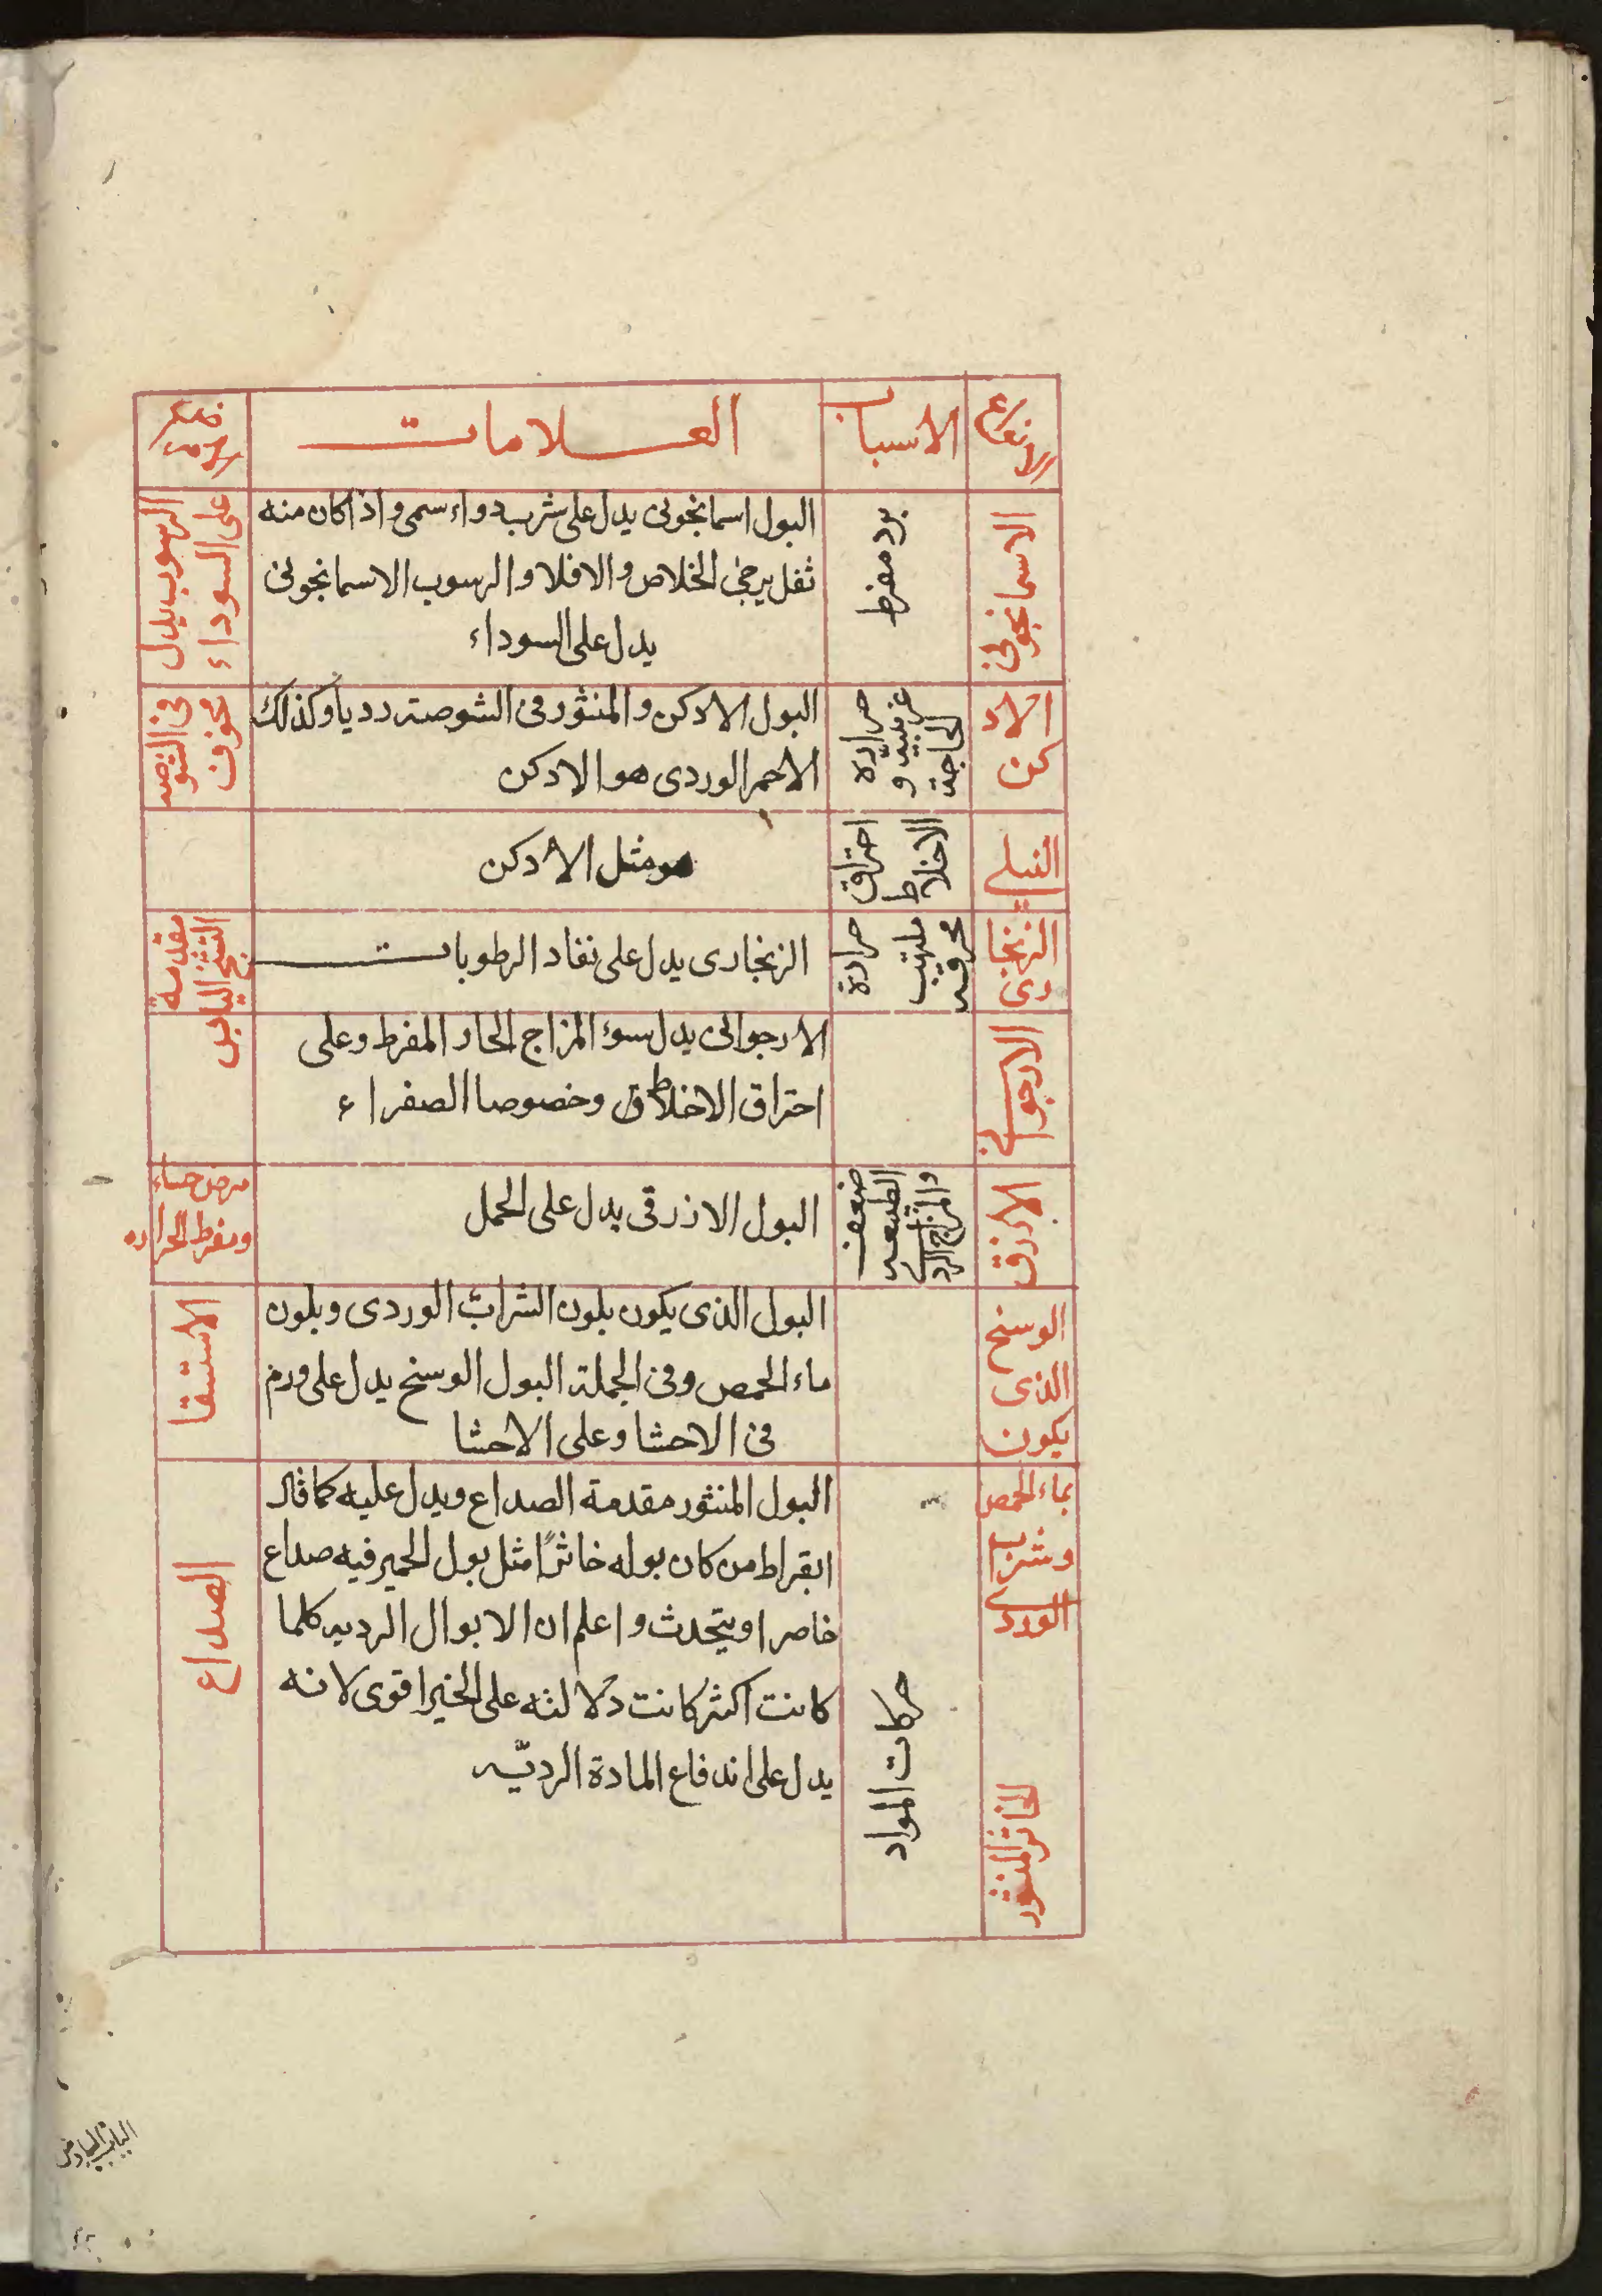 الانواع
الاسباب
العلامات
الاسمانجونى
برد مفرط
البول اسمانجونى يدل على شرب دواء سمى واذا كان منه
ثفل يرجى الخلاص والا فلا والرسوب الاسمانجونى
يدل على السوداء
الرسوب يدل
على السوداء
الاد
كن
حرارة
غريبية و
البول الادكن والمنثور فى الشوصة رديا وكذلك
الاحمر الوردى هو الادكن
فى الشوصه
مخوف
النيلى
احتراق
الاخلاط
هو مثل الادكن
الزنجا
رى
حرارة
ملتهبه
محرقه
الزنجارى يدل على نفاد الرطوبات
مقدمة
التشنج اليابس
الارجوانى
الارجوانى يدل سوء المزاج الحار المفرط وعلى
احتراق الاخلاط وخصوصا الصفراء
الازرق
ضعف
الطبيعه
البول الازرقى يدل على الحمل
ومفرط الحراره
الوسخ
الذى
يكون
البول الذى يكون بلون الشراب الوردى وبلون
ماء الحمص وفى الجملة البول الوسخ يدل على ورم
فى الاحشا وعلى الاحشا
الاستسقا
بماء الحمص
وشرب
الورد
الخاثر المنثور
حركات المواد
البول المنثور مقدمة الصداع ويدل عليه كما قال
ابقراط من كان بوله خاثرًا مثل بول الحمير فيه صداع
حاصر او يتحدث واعلم ان الابوال الرديه كلما
كانت اكثر كانت دلالته على الخير اقوى لانه
يدل على اندفاع المادة الرديّه
الصداع
الباب السادس